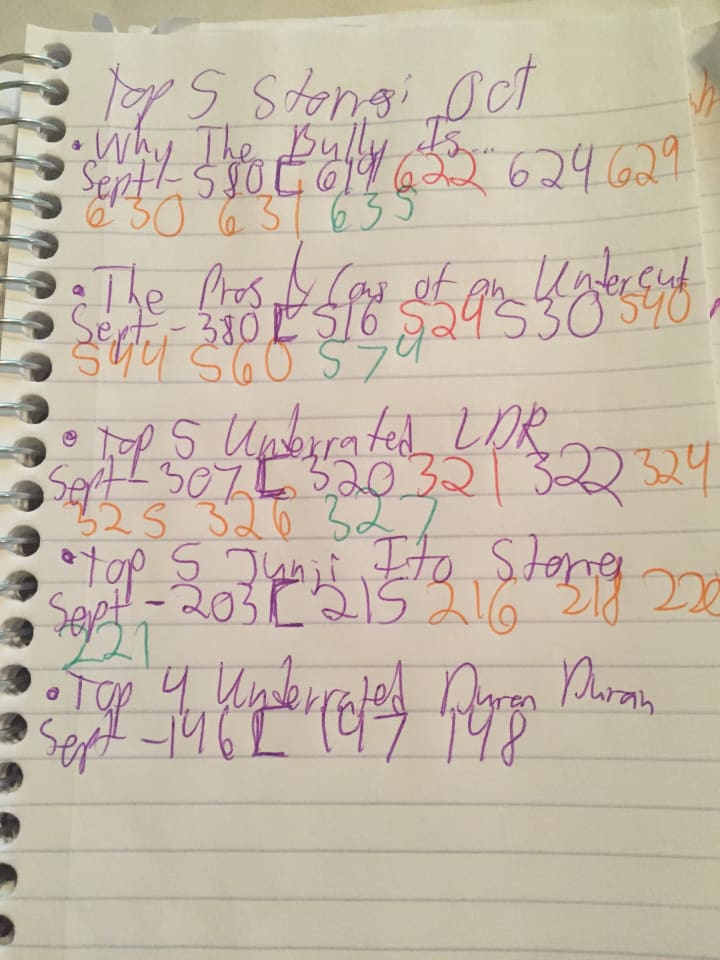 Top 5 Stories: Oct
• Why The Bully Is...
Sept - 580 [ 619 622 624 629
630 631 635
• The Pros & Cons of an Undercut
Sept - 380 [ 516 524 530 540
544 560 574
• Top 5 Underrated LDR
Sept - 307 [ 320 321 322 324
325 326 327
• Top 5 Junji Ito Stories
Sept - 203 [ 215 216 218 220
221
• Top 4 Underrated Duran Duran
Sept - 146 [ 147 148